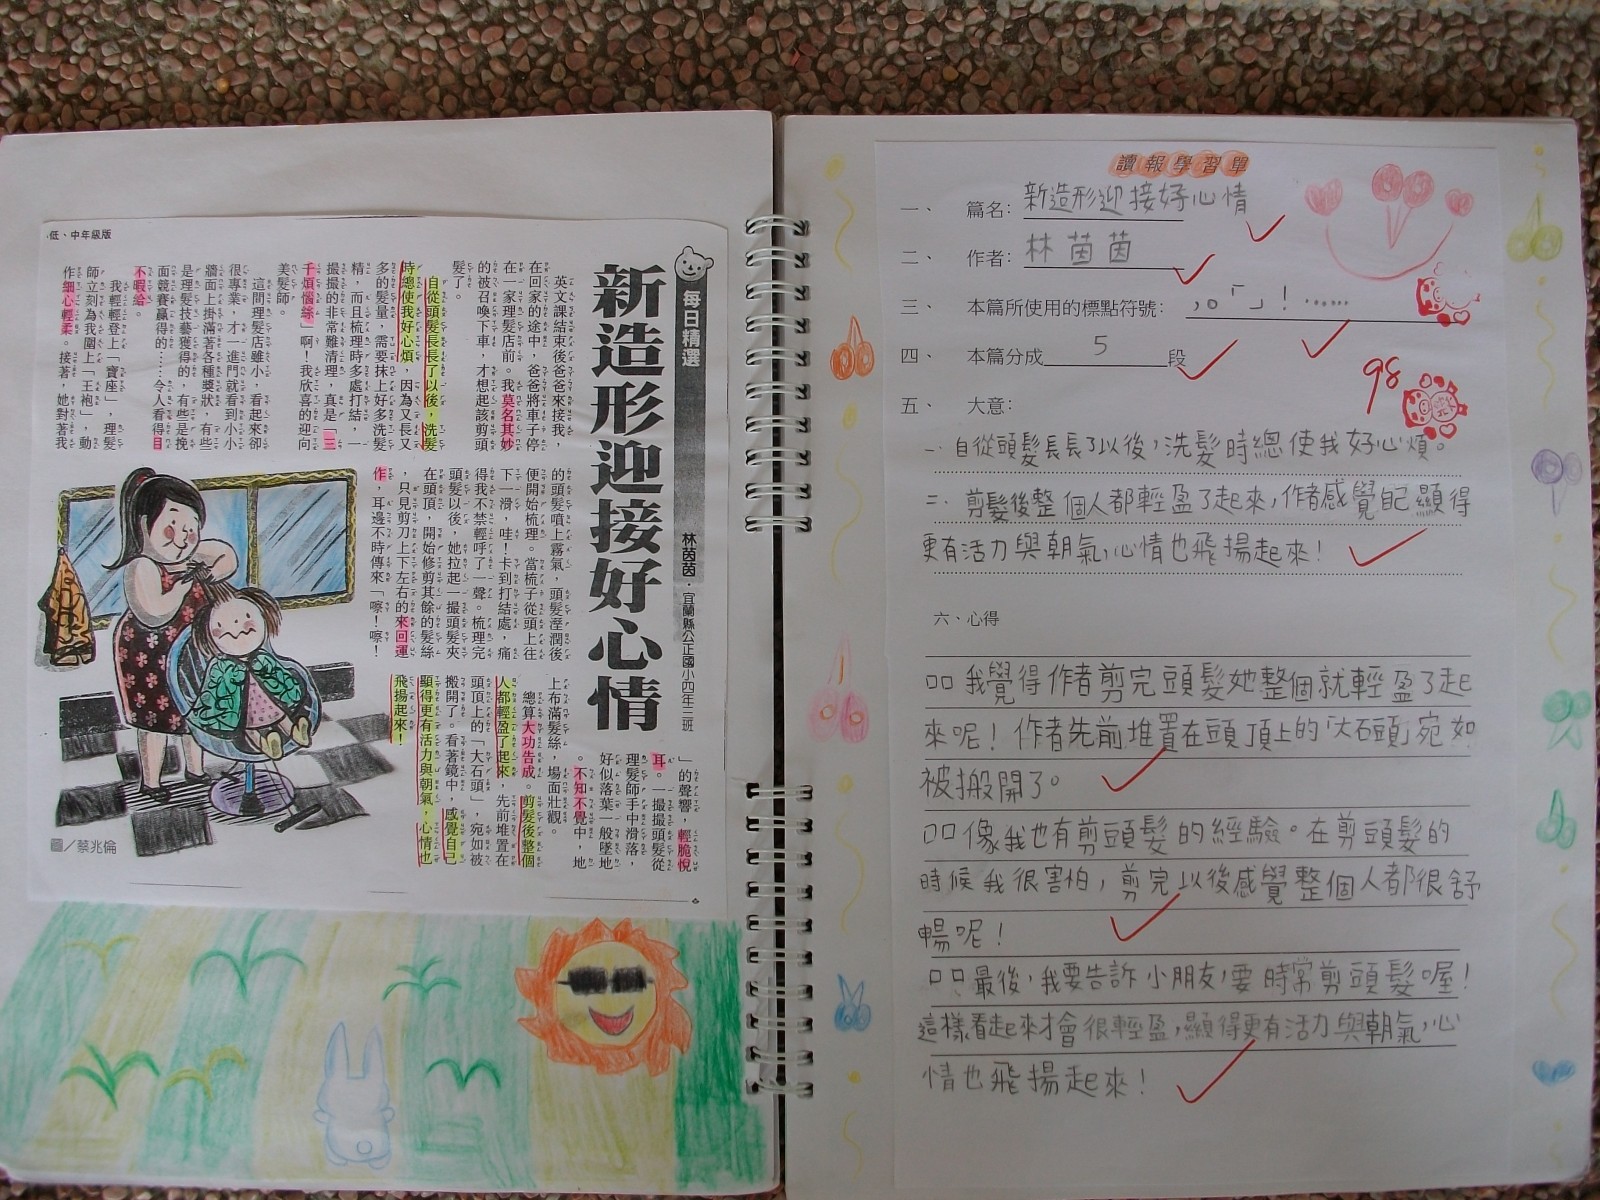 低、中年級版
每日精選
新造形迎接好心情
林茵茵．宜蘭縣公正國小四年三班
英文課結束後爸爸來接我，
在回家的途中，爸爸將車子停
在一家理髮店前。我莫名其妙
的被召喚下車，才想起該剪頭
髮了。
自從頭髮長長了以後，洗髮
時總使我好心煩，因為又長又
多的髮量，需要抹上好多洗髮
精，而且梳理時多處打結，一
撮撮的非常難清理，真是「三
千煩惱絲」啊！我欣喜的迎向
美髮師。
這間理髮店雖小，看起來卻
很專業，才一進門就看到小小
牆面上掛滿著各種獎狀，有些
是理髮技藝獲得的，有些是挽
面競賽贏得的……令人看得目
不暇給。
我輕輕登上「寶座」，理髮
師立刻為我圍上「王袍」，動
作細心輕柔。接著，她對著我
的頭髮噴上霧氣，頭髮溼潤後
便開始梳理。當梳子從頭上往
下一滑，哇！卡到打結處，痛
得我不禁輕呼了一聲。梳理完
頭髮以後，她拉起一撮頭髮夾
在頭頂，開始修剪其餘的髮絲
，只見剪刀上下左右的來回運
作，耳邊不時傳來「嚓！嚓！
」的聲響，輕脆悅
耳。一撮撮頭髮從
理髮師手中滑落，
好似落葉一般墜地
。不知不覺中，地
上布滿髮絲，場面壯觀。
總算大功告成。剪髮後整個
人都輕盈了起來，先前堆置在
頭頂上的「大石頭」，宛如被
搬開了。看著鏡中，感覺自己
顯得更有活力與朝氣，心情也
飛揚起來！
圖／蔡兆倫
讀報學習單
一、 篇名：新造形迎接好心情
二、 作者：林茵茵
三、 本篇所使用的標點符號：，。「」！……
四、 本篇分成5段
98
五、 大意：
一、自從頭髮長長了以後，洗髮時總使我好心煩。
二、剪髮後整個人都輕盈了起來，作者感覺自己顯得
更有活力與朝氣，心情也飛揚起來！
六、心得
口口我覺得作者剪完頭髮她整個就輕盈了起
來呢！作者先前堆置在頭頂上的「大石頭」宛如
被搬開了。
口口像我也有剪頭髮的經驗。在剪頭髮的
時候我很害怕，剪完以後感覺整個人都很舒
暢呢！
口口最後，我要告訴小朋友，要時常剪頭髮喔！
這樣看起來才會很輕盈，顯得更有活力與朝氣，心
情也飛揚起來！